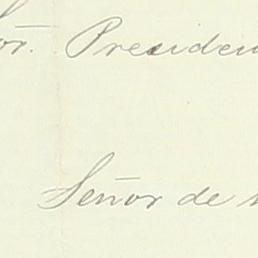 or. Presiden
Señor de